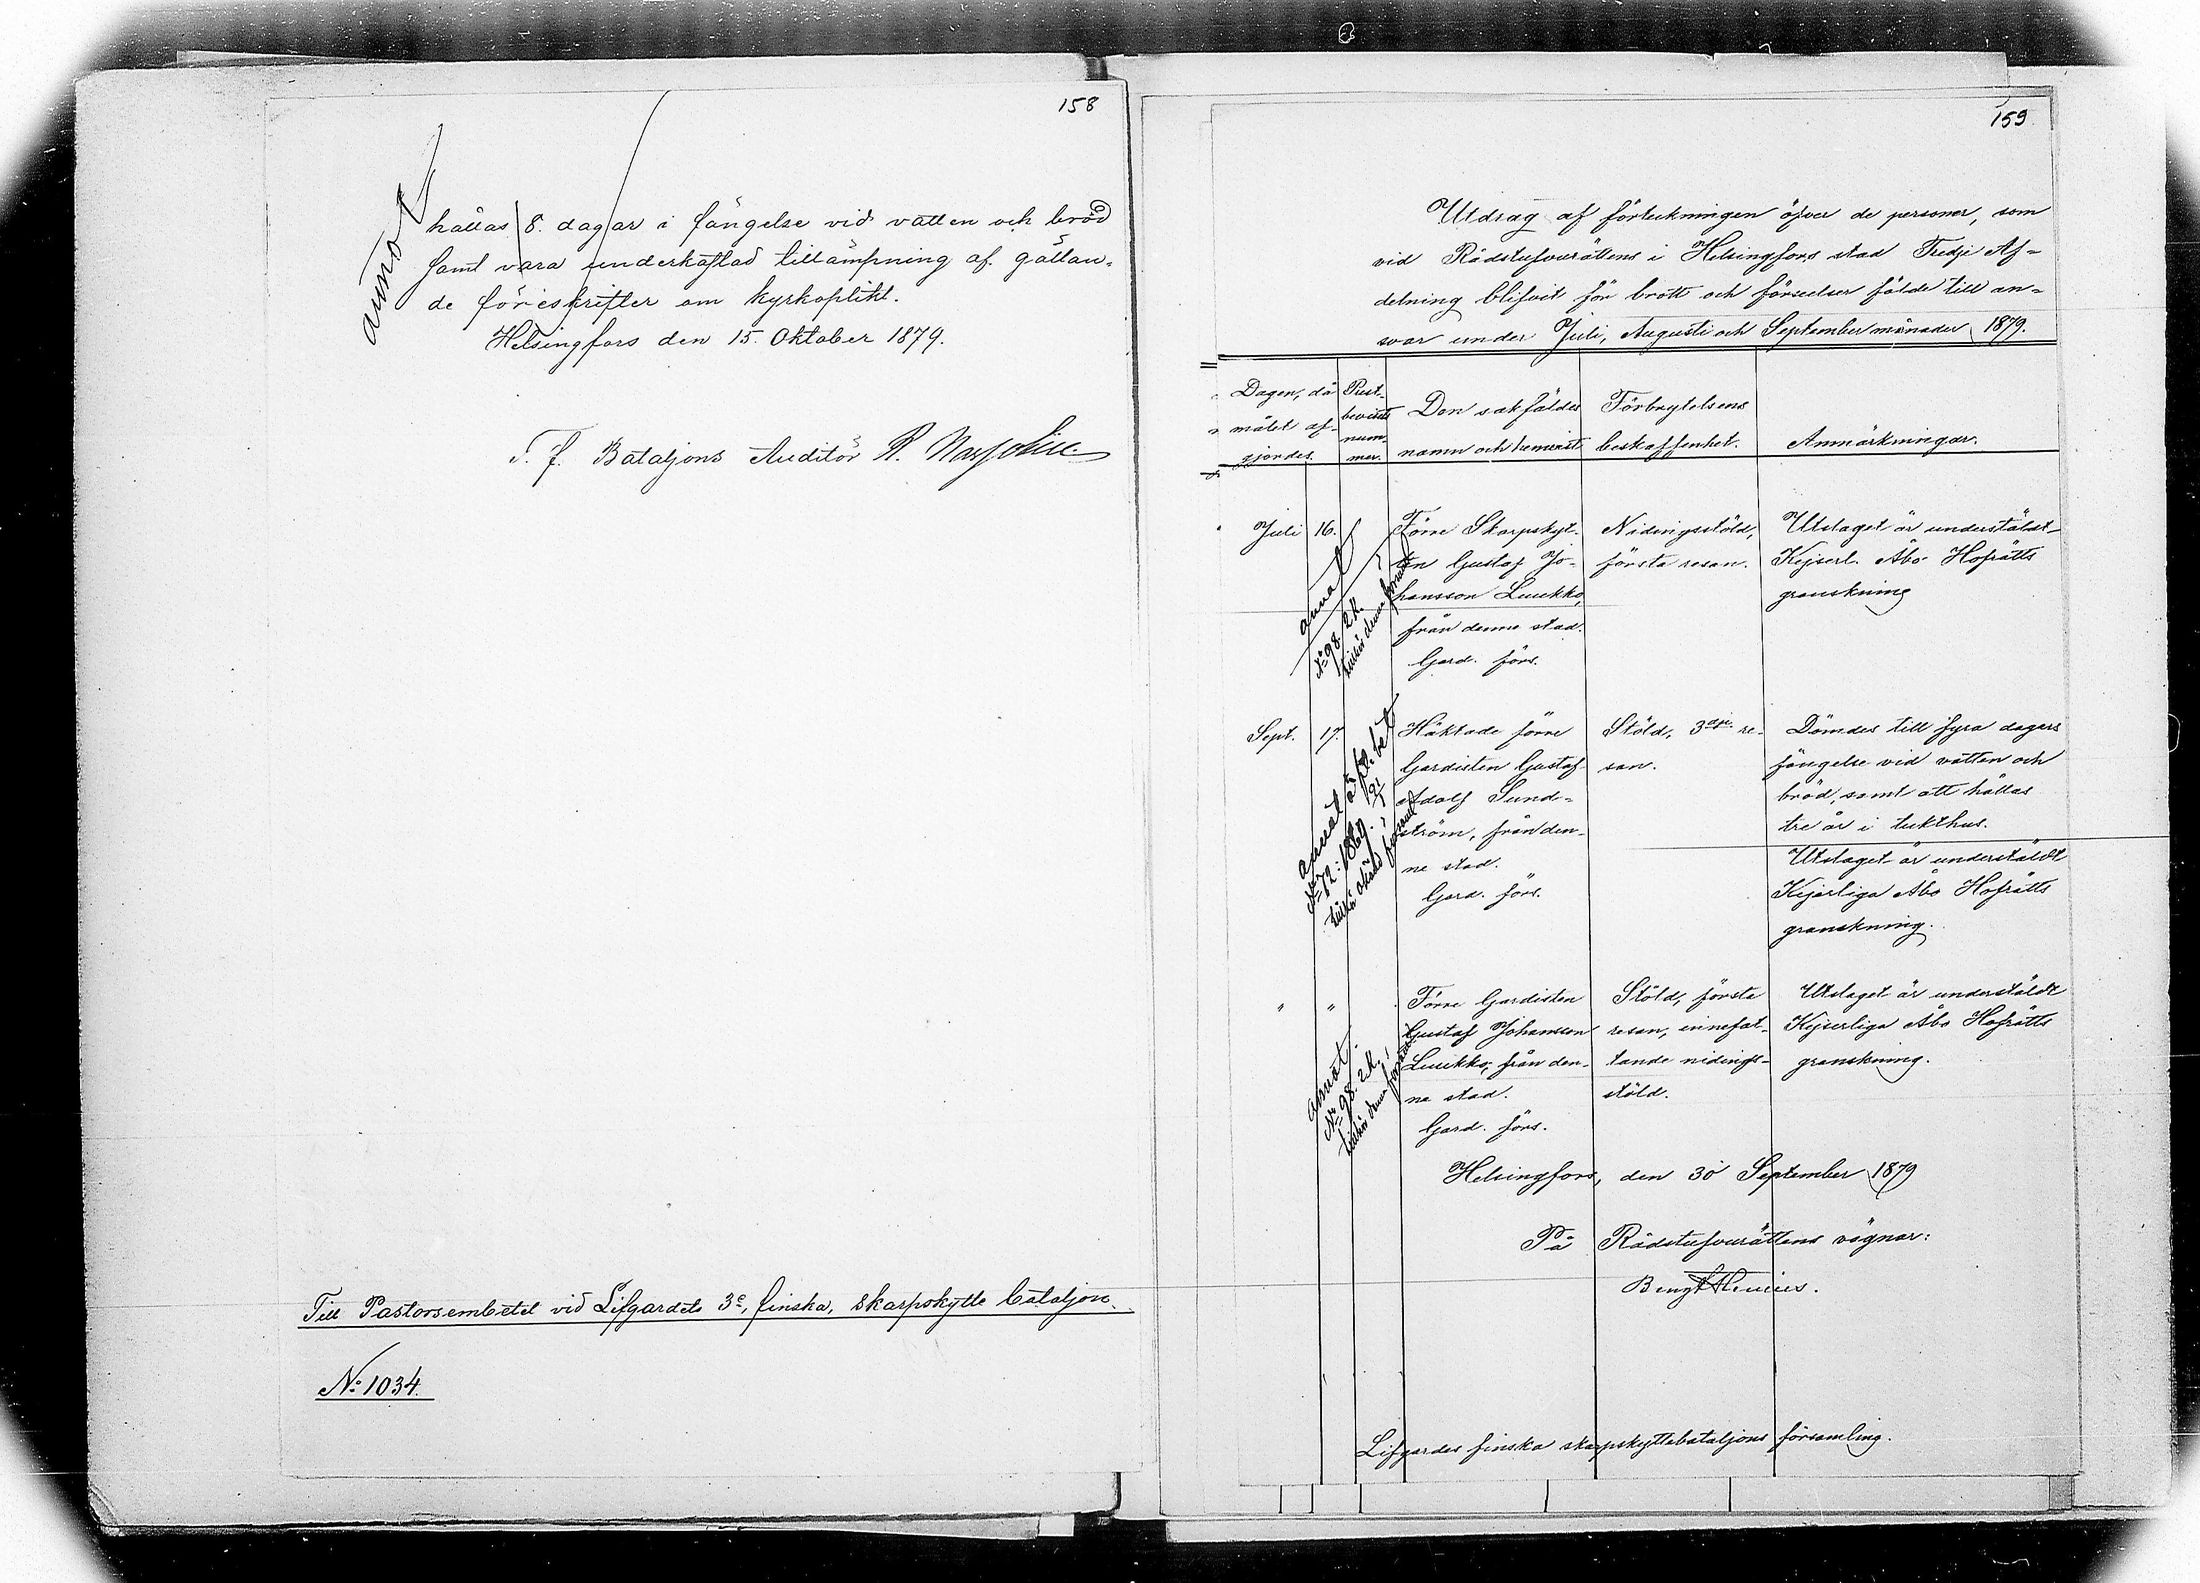 158
annot
hållas 8. dagar i fängelse vid vatten och bröd
samt vara underkastad tillämpning af gällan-
de föreskrifter om kyrkoplikt.
Helsingfors den 15. Oktober 1879.
T. f. Bataljons Auditör R.
Till Pastorsembetet vid Lifgardets 3e, finska, skarpskytte bataljon.
No 1034.
159
Utdrag af förteckningen öfver de personer, som
vid Rådstufvurättens i Helsingfors stad Tredje Af-
delning blifvit för brott och förseelser fälde till an-
svar under Juli, Augusti och September månader 1879.
Dagen, då målet af-gjordes.
Prest-bevisets num-mer.
Den sakfäldes namn och hemvist
Förbrytelsens beskaffenhet.
Anmärkningar.
Juli 16.
annot
No 98. 2k.
Förre Skarpskyt-
ten Gustaf Jo-
hansson Luukko,
från denne stad.
Gard. förs.
Nidingsstöld,
första resan.
Utslaget är underställdt
Kejserl. Åbo Hofrätts
granskning
Sept. 17.
annot
No 72.
Häktade förre
Gardisten Gustaf
Adolf Sund-
ström, från den-
ne stad.
Gard. förs.
Stöld, 3dje re-
san.
Dömdes till fyra dagars
fängelse vid vatten och
bröd, samt att hållas
tre år i tukthus.
Utslaget är underställdt
Kejserliga Åbo Hofrätts
granskning.
" "
annot.
No 98. 2k.
Förre Gardisten
Gustaf Johansson
Luukko, från den-
ne stad.
Gard. förs.
Stöld, första
resan, innefat-
tande nidings-
stöld.
Utslaget är underställdt
Kejserliga Åbo Hofrätts
granskning.
Helsingfors, den 30 September 1879
På Rådstufvurättens vägnar:
Bengt
Lifgardes finska skarpskyttebataljons församling.